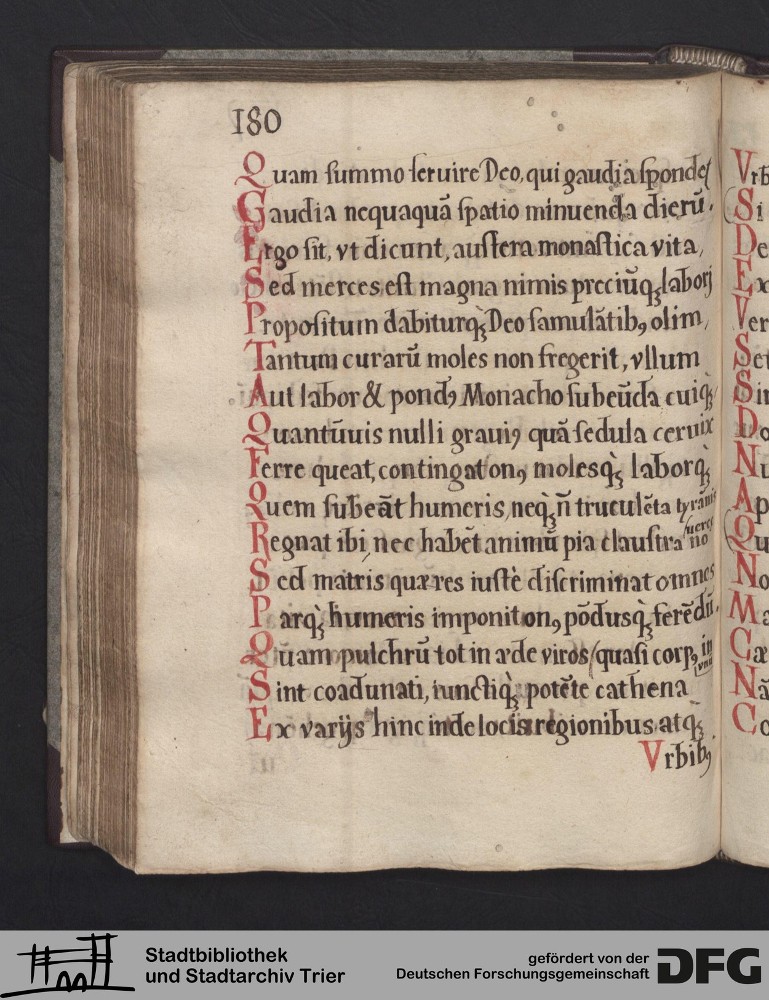 180
Quam summo seruire Deo, qui gaudia spondet
Gaudia nequaquā spatio minuenda dierū.
Ergo sit, vt dicunt, austera monastica vita,
Sed merces est magna nimis preciūq; laborj
Propositum dabiturq; Deo samulātib9 olim,
Tantum curarū moles non fregerit, vllum
Aut labor & pond9 Monacho subeūda cuiq;
Quantūuis nulli graui9 quā sedula ceruix
Ferre queat, contingat on9, molesq; laborq;
Quem subeāt humeris, neq; n̄ truculēta tyrānis
Regnat ibi, nec habēt animū pia claustra nouercę
Sed matris quæ res iustè discriminat omnes
Parq; humeris imponit on9, pōdusq; ferēdū.
Quam pulchrū tot in æde viros (quasi corp9 in vnū
Sint coadunati, iunctiq; potēte cathena
Ex varijs hinc inde locis regionibus atq;
Vrbib9
Vrb
(Si
De
Ex
Ver
Set
Sin
Do
Nu
Ap
(Qu
No
Ma
Cæ
Nā
Co
Stadtbibliothek
und Stadtarchiv Trier
gefördert von der
Deutschen Forschungsgemeinschaft
DFG